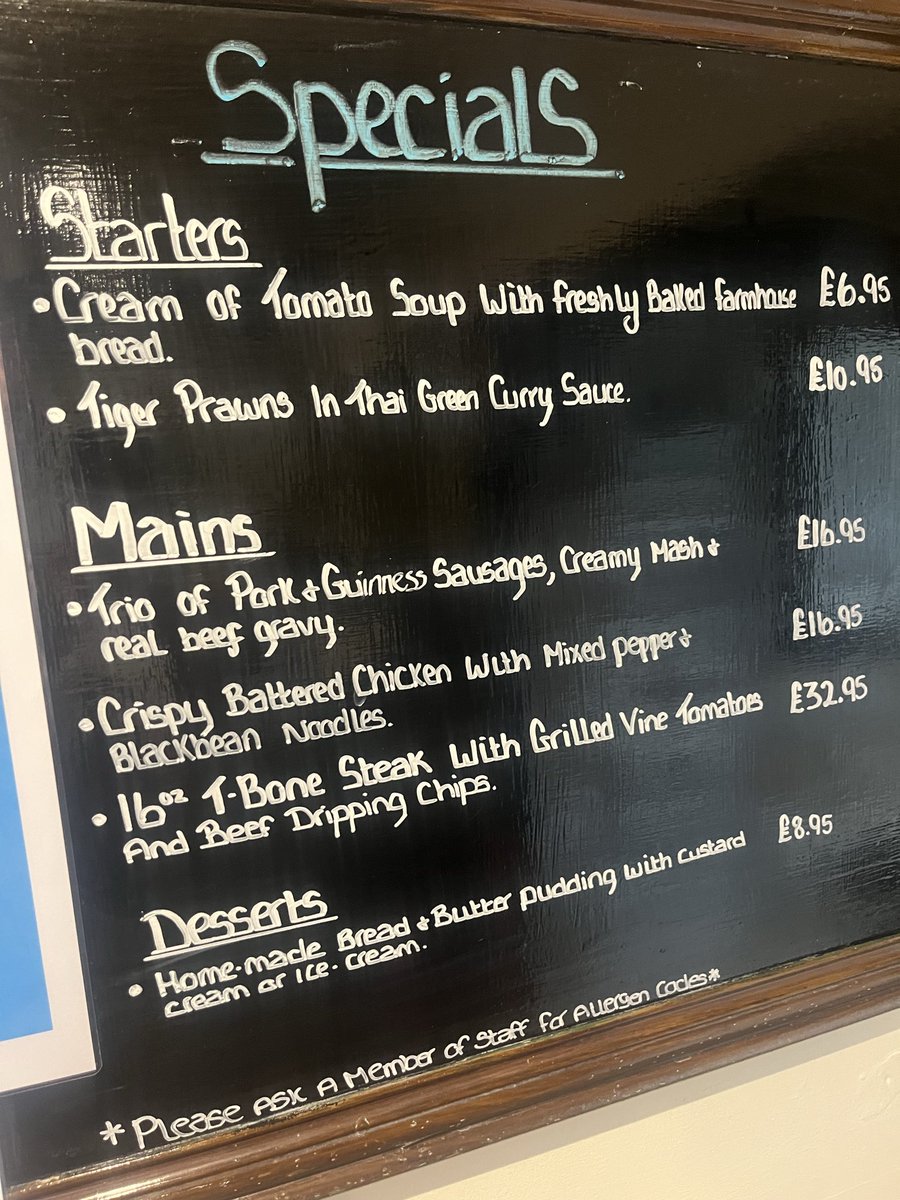 Specials
Starters
• Cream of Tomato Soup With freshly Baked farmhouse £6.95
bread.
• Tiger Prawns In Thai Green Curry Sauce. £10.95
Mains
• Trio of Pork & Guinness Sausages, Creamy Mash & £16.95
real beef gravy.
• Crispy Battered Chicken With Mixed pepper & £16.95
Blackbean Noodles.
• 16oz T-Bone Steak With Grilled Vine Tomatoes £32.95
And Beef Dripping Chips.
Desserts
• Home-made Bread & Butter pudding with custard £8.95
cream or Ice-cream.
* Please Ask A Member of Staff for Allergen Codes *